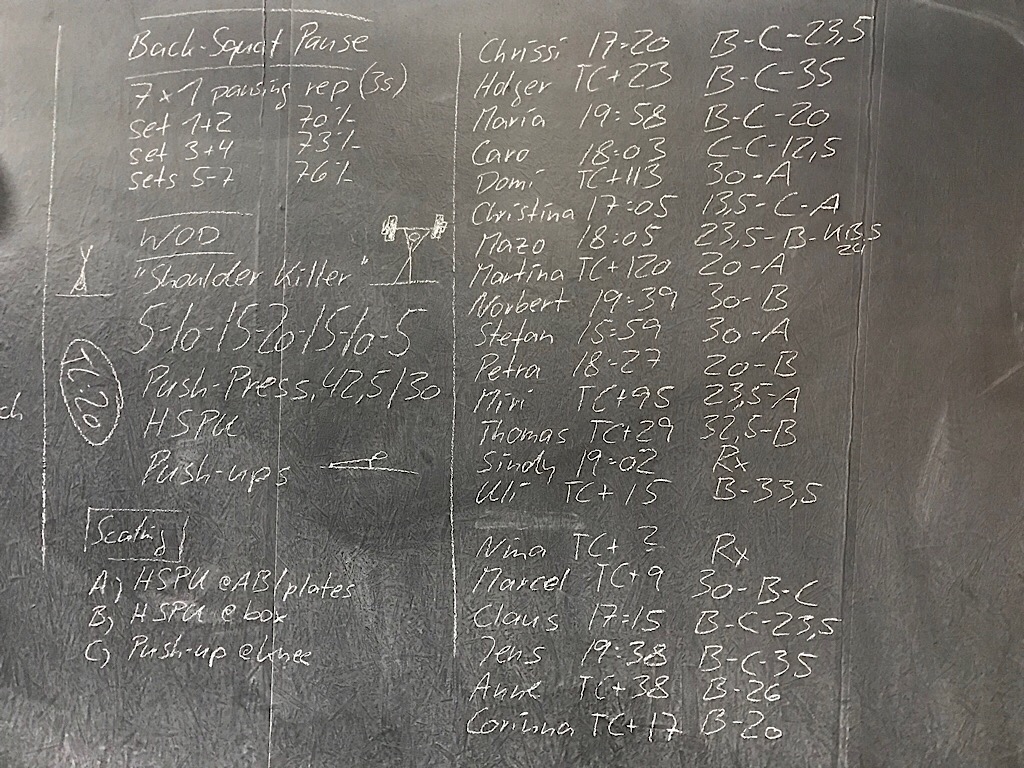 Back-Squat Pause
7x1 pausing rep (3s)
set 1+2 70%
set 3+4 73%
sets 5-7 76%
WOD
"Shoulder Killer"
5-10-15-20-15-10-5
TC:20
Push-Press, 42,5/30
HSPU
Push-ups
Scaling
A) HSPU @AB/plates
B) HSPU @ box
C) Push-up @knee
Chrissi 17:20 B-C-23,5
Holger TC+23 B-C-35
Maria 19:58 B-C-20
Caro 18:03 C-C-12,5
Domi TC+113 30-A
Christina 17:05 13,5-C-A
Mazo 18:05 23,5-B-
Martina TC+120 20-A
Norbert 19:39 30-B
Stefan 15:59 30-A
Petra 18:27 20-B
Miri TC+95 23,5-A
Thomas TC+29 32,5-B
Sindy 19:02 Rx
Uli TC+15 B-33,5
Nina TC+ ? Rx
Marcel TC+9 30-B-C
Claus 17:15 B-C-23,5
Jens 19:38 B-C-35
Anne TC+38 B-26
Corinna TC+17 B-20